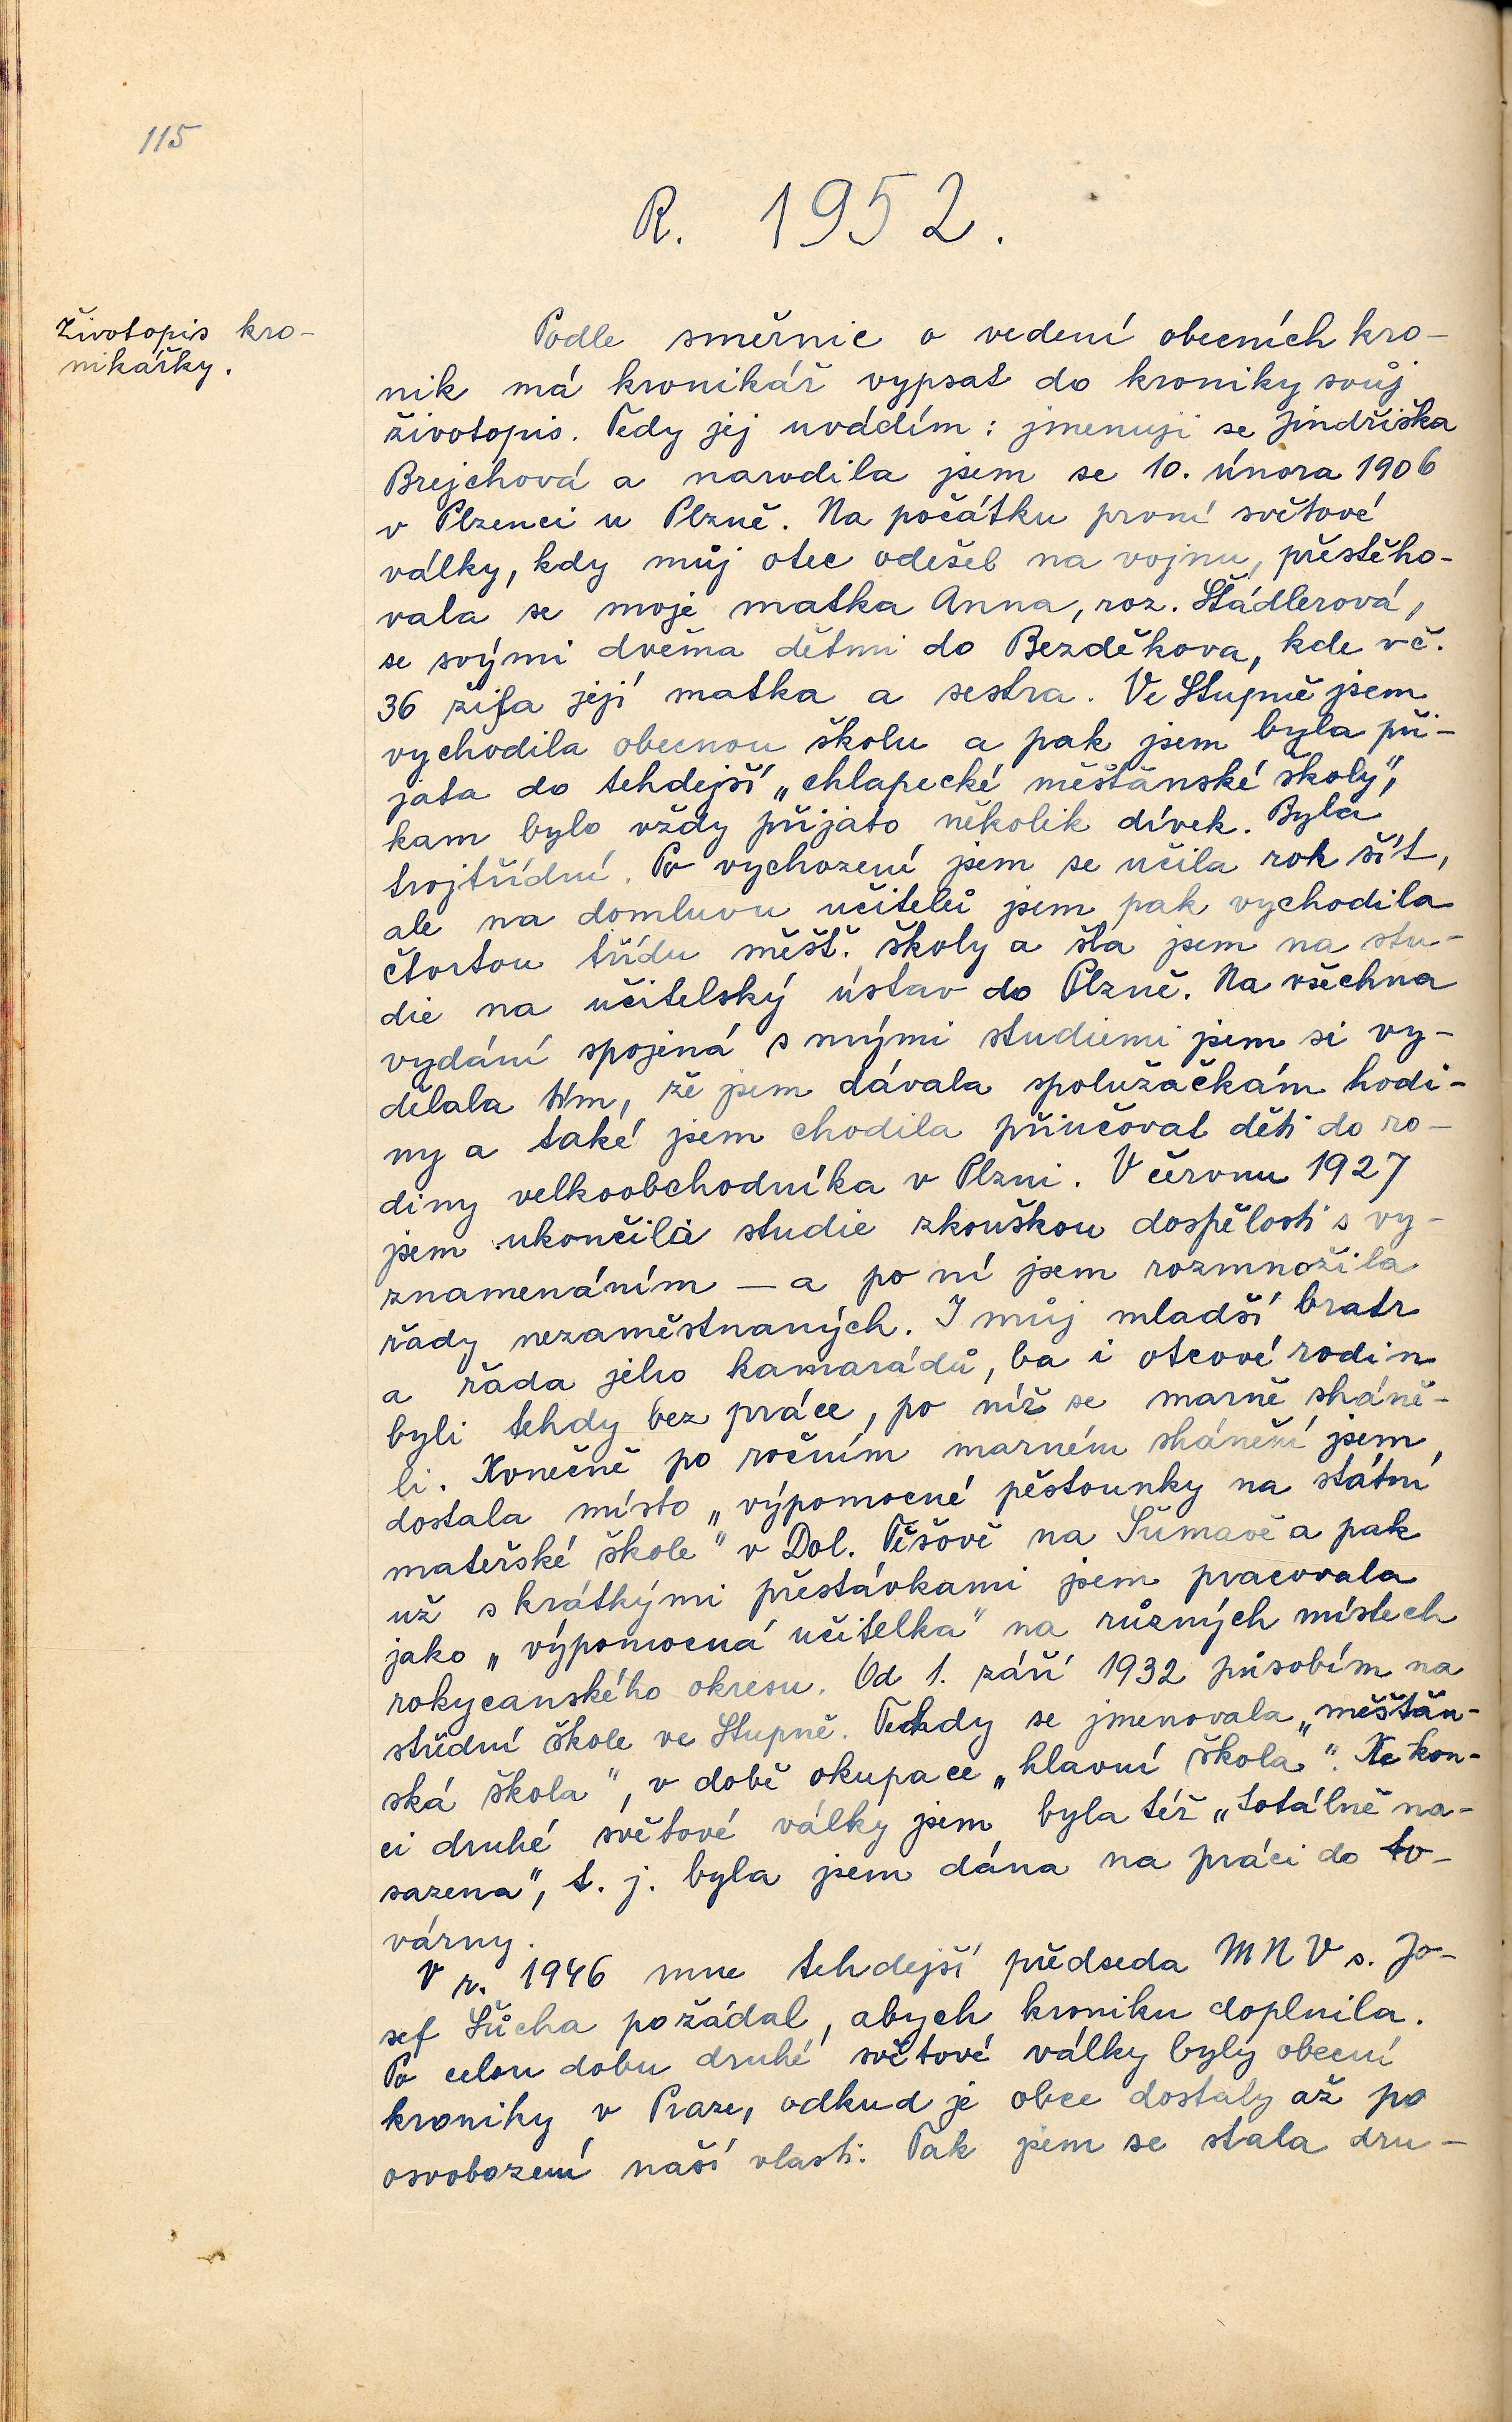 115
R. 1952.
Životopis kro-
nikářky.
Podle směrnic o vedení obecních kro-
nik má kronikář vypsat do kroniky svůj
životopis. Tedy jej uvádím: jmenuji se Jindřiška
Brejchová a narodila jsem se 10. února 1906
v Plzenci u Plzně. Na počátku první světové
války, kdy můj otec odešel na vojnu, přestěho-
vala se moje matka Anna, roz. Štádlerová,
se svými dvěma dětmi do Bezděkova, kde v č.
36 žila její matka a sestra. Ve Stupně jsem
vychodila obecnou školu a pak jsem byla při-
jata do tehdejší „chlapecké měšťanské školy“,
kam bylo vždy přijato několik dívek. Byla
trojtřídní. Po vychození jsem se učila rok šít,
ale na domluvu učitelů jsem pak vychodila
čtvrtou třídu měšť. školy a šla jsem na stu-
die na učitelský ústav do Plzně. Na všechna
vydání spojená s mými studiemi jsem si vy-
dělala tím, že jsem dávala spolužačkám hodi-
ny a také jsem chodila přiučovat děti do ro-
diny velkoobchodníka v Plzni. V červnu 1927
jsem ukončila studie zkouškou dospělosti s vy-
znamenáním – a po ní jsem rozmnožila
řady nezaměstnaných. I můj mladší bratr
a řada jeho kamarádů, ba i otcové rodin
byli tehdy bez práce, po níž se marně sháně-
li. Konečně po ročním marném shánění jsem
dostala místo „výpomocné pěstounky na státní
mateřské škole“ v Dol. Těšově na Šumavě a pak
už s krátkými přestávkami jsem pracovala
jako „výpomocná učitelka“ na různých místech
rokycanského okresu. Od 1. září 1932 působím na
střední škole ve Stupně. Tehdy se jmenovala „měšťan-
ská škola“, v době okupace „hlavní škola“. Ke kon-
ci druhé světové války jsem byla též „totálně na-
sazena“, t. j. byla jsem dána na práci do to-
várny.
V r. 1946 mne tehdejší předseda MNV s. Jo-
sef Šůcha požádal, abych kroniku doplnila.
Po celou dobu druhé světové války byly obecní
kroniky v Praze, odkud je obce dostaly až po
osvobození naší vlasti. Tak jsem se stala dru-